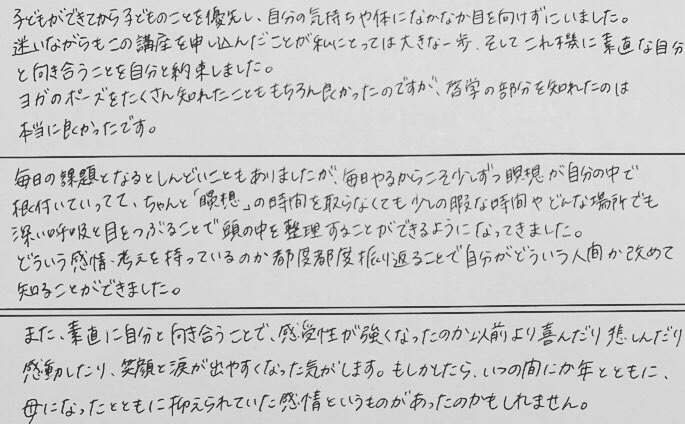 子どもができてから子どものことを優先し、自分の気持ちや体になかなか目を向けずにいました。
迷いながらもこの講座を申し込んだことが私にとっては大きな一歩、そしてこれ機に素直な自分
と向き合うことを自分と約束しました。
ヨガのポーズをたくさん知れたことももちろん良かったのですが、哲学の部分を知れたのは
本当に良かったです。
毎日の課題となるとしんどいこともありましたが、毎日やるからこそ少しずつ瞑想が自分の中で
根付いていってて、ちゃんと「瞑想」の時間を取らなくても少しの暇な時間やどんな場所でも
深い呼吸と目をつぶることで頭の中を整理することができるようになってきました。
どういう感情・考えを持っているのか都度都度振り返ることで自分がどういう人間か改めて
知ることができました。
また、素直に自分と向き合うことで、感受性が強くなったのか以前より喜んだり悲しんだり
感動したり、笑顔と涙が出やすくなった気がします。もしかしたら、いつの間にか年とともに、
母になったとともに抑えられていた感情というものがあったのかもしれません。